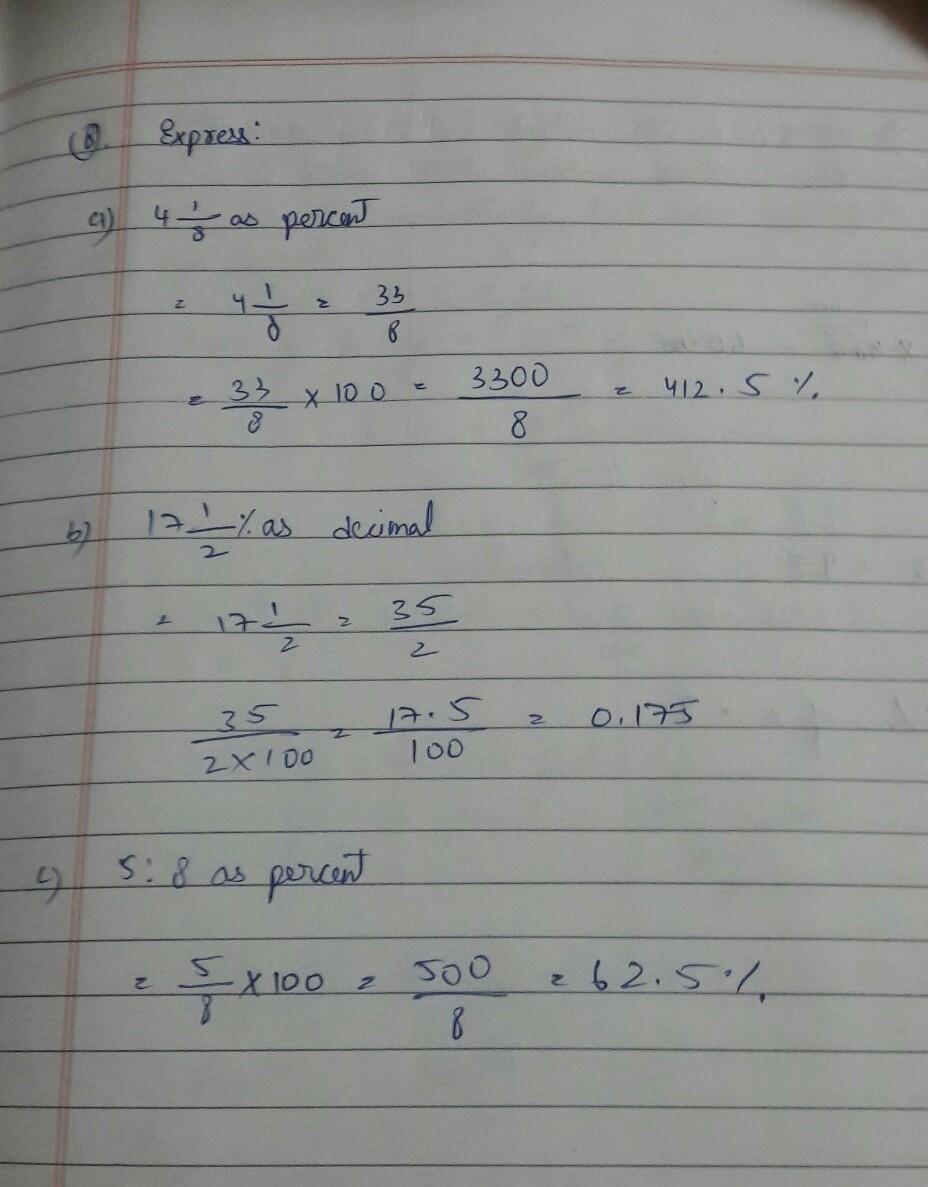 8. Express:
a) 4 1/8 as percent
= 4 1/8 = 33/8
= 33/8 × 100 = 3300/8 = 412.5 %.
b) 17 1/2 % as decimal
= 17 1/2 = 35/2
35/2×100 = 17.5/100 = 0.175
c) 5:8 as percent
= 5/8 ×100 = 500/8 = 62.5 %.